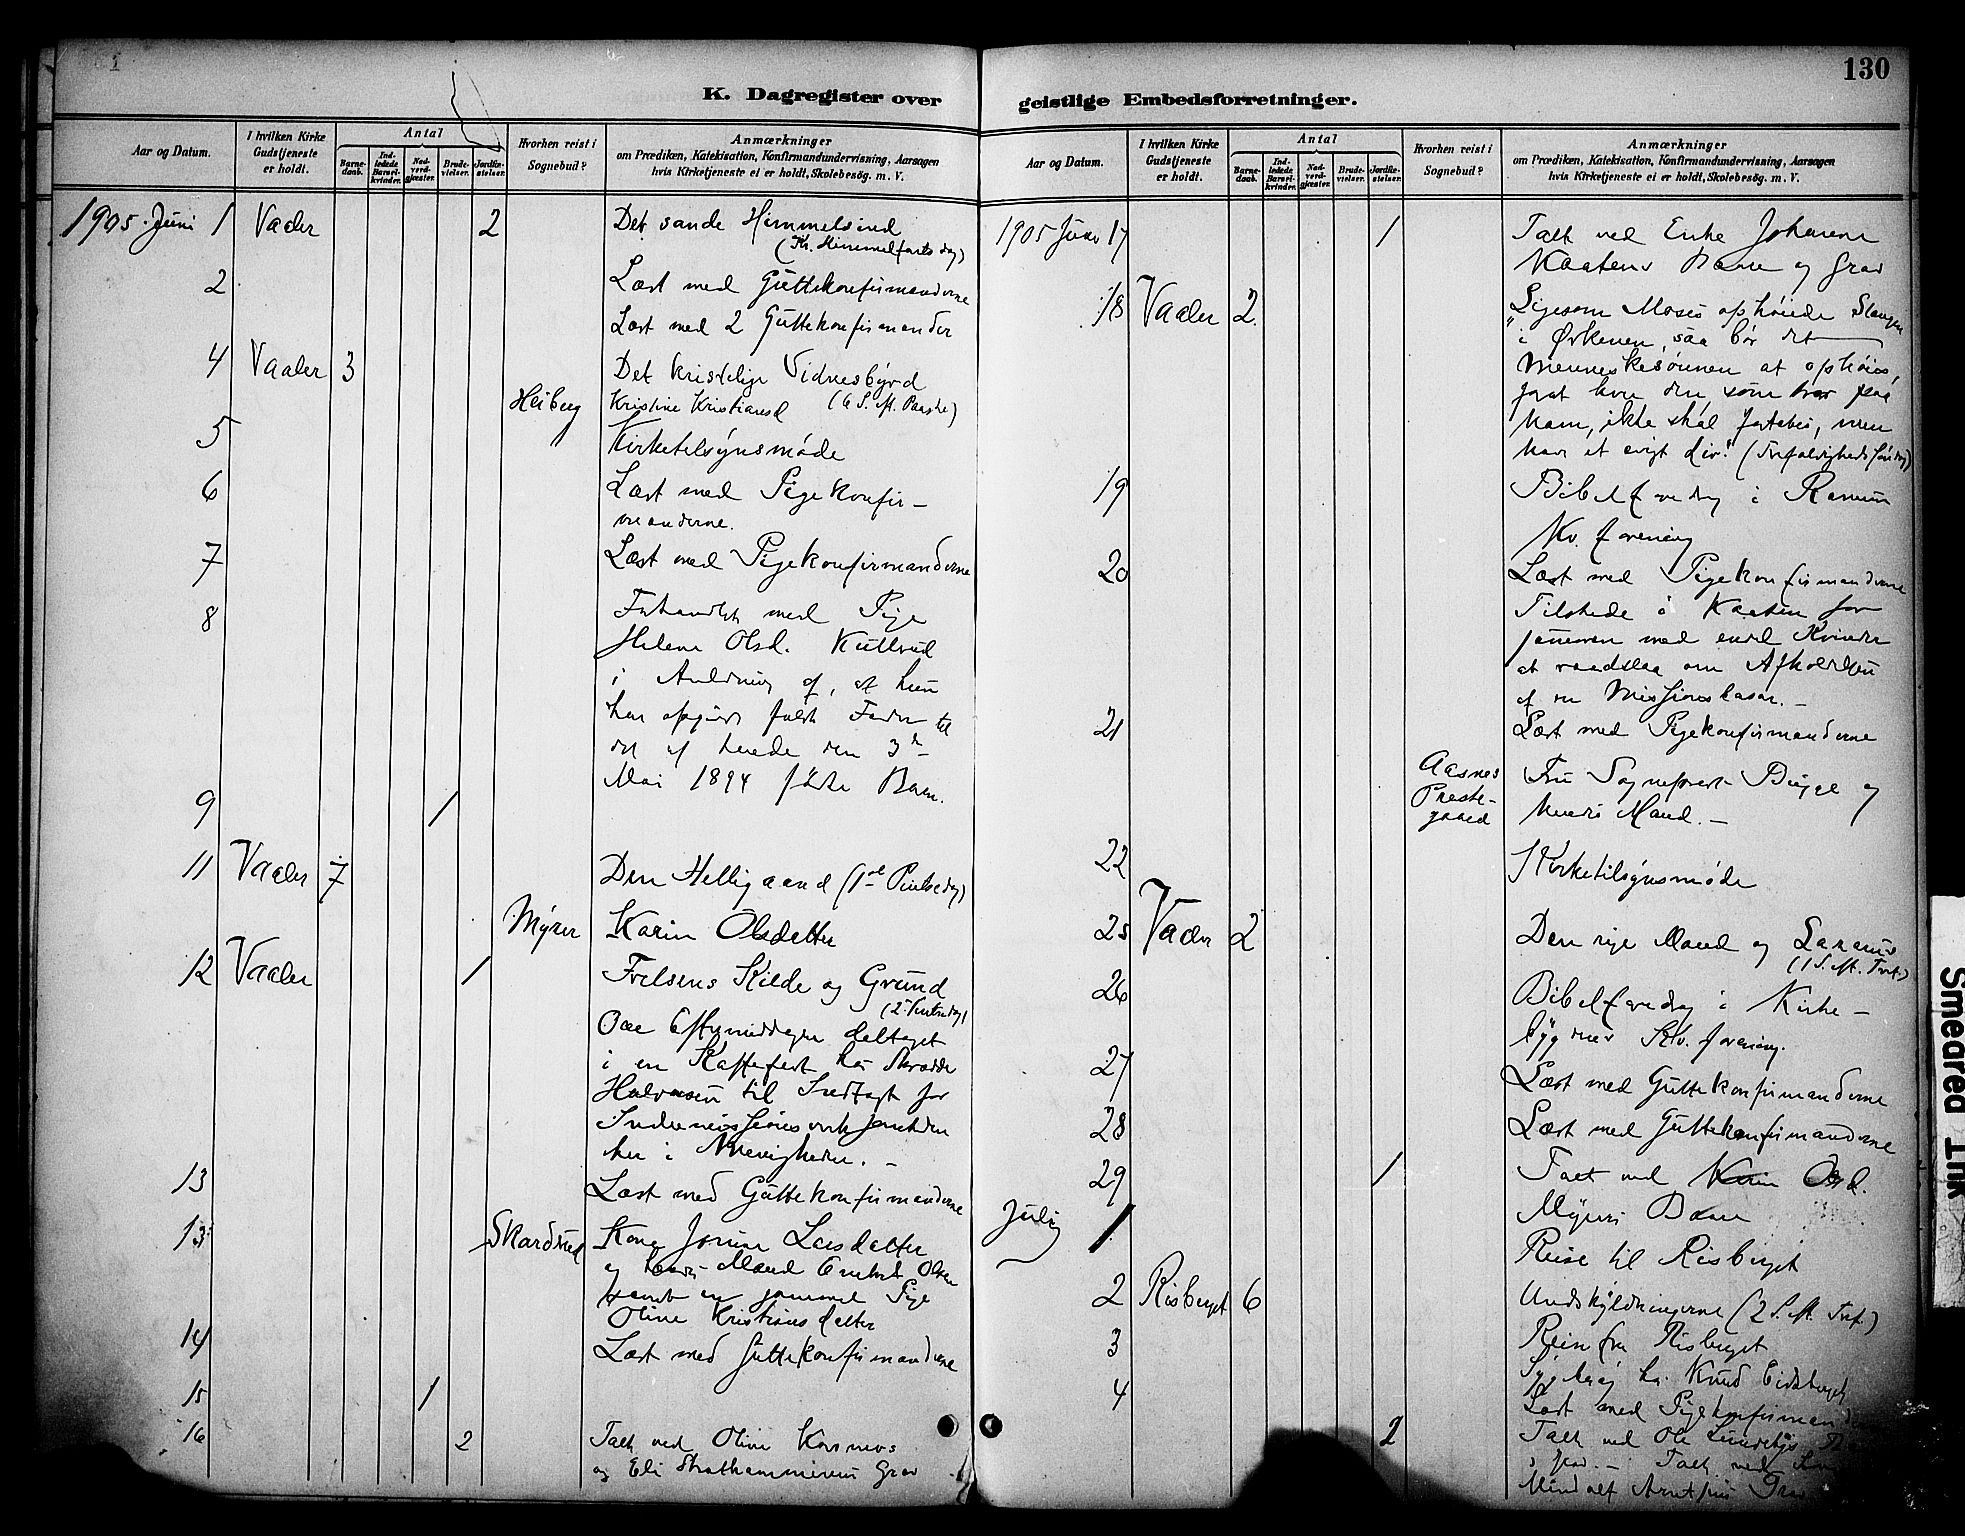 130
K. Dagregister over
Aar og Datum.
I hvilken Kirke Gudstjeneste er holdt.
Antal
Barnedaab.
Indledede Barselkvinder.
Nadverdgjæster.
Brudevielser.
Jordfæstelser.
Hvorhen reist i Sognebud?
Anmærkninger
om Prædiken, Katekisation, Konfirmandundervisning, Aarsagen
hvis Kirketjeneste ei er holdt, Skolebesøg. m. V.
1905 Juni 1 Vaaler 2 Det sande Himmelsind
(Kr. Himmelfarts dag)
2 Læst med Guttekonfirmanderne
Læst med 2 Guttekonfirmander
4 Vaaler 3 Det kristelige Vidnesbyrd
Heiberg Kristine Kristiansd (6 S. Eft. Paaske)
5 Kirketilsynsmøde
6 Læst med Pigekonfir-
manderne.
7 Læst med Pigekonfirmanderne
8 Forhandlet med Pige
Helene Olsd. Kultrud
i Anledning af, at hun
har opgivet falsk Fader til
det af hende den 3de
Mai 1894 fødte Barn.
9 1
11 Vaaler 7 Den Helligaand (1ste Pintsedag)
Myrer Karin Olsdatter
12 Vaaler 1 Frelsens Kilde og Grund
(2. Pintsedag)
Om Eftermiddagen deltaget
i en Kaffefest hos Skrædder
Halvorsen til Indtægt for
Indremissionsvirksomheden
her i Menigheden. -
13 Læst med Guttekonfirmanderne
13 Skardrud Kone Larsdatter
og hendes Mand Olsen
samt en gammel Pige
Oline Kristiansdatter
14 Læst med Guttekonfirmanderne
15 1
16 2 Talt ved Oline
og Eli Grav
geistlige Embedsforretninger.
Aar og Datum.
I hvilken Kirke Gudstjeneste er holdt.
Antal
Barnedaab.
Indledede Barselkvinder.
Nadverdgjæster.
Brudevielser.
Jordfæstelser.
Hvorhen reist i Sognebud?
Anmærkninger
om Prædiken, Katekisation, Konfirmandundervisning, Aarsagen
hvis Kirketjeneste ei er holdt, Skolebesøg. m. V.
1905 Juni 17 1 Talt ved Enke Johanne
Kaatens Baare og Grav
18 Vaaler 2 "Ligesom Moses ophøiede Slangen
i Ørkenen, saa bør det
Menneskesønnen at ophøies,
forat hver den, som tror paa
ham, ikke skal fortabes, men
have et evigt Liv." (Trefoldigheds Søndag)
19 Bibelforedrag i
Kv. forening
20 Læst med Pigekonfirmanderne
Tilstede i Kaaten for
sammen med endel Kvinder
at raadslaa om Afholdelsen
af en Missionsbasar. -
21 Læst med Pigekonfirmanderne
Aasnes Fru Sogneprest Bugge og
Preste- hendes Mand. -
gaard
22 Kirketilsynsmøde
25 Vaaler 2 Den rige Mand og Lazarus
(1 S. Eft. Tref.)
26 Bibelforedrag i Kirke-
bygdens Kv. forening.
27 Læst med Guttekonfirmanderne
28 Læst med Guttekonfirmanderne
29 1 Talt ved Karin Olsd.
Myrers Baare
Juli 1 Reise til Risberget
2 Risberget 6 Undskyldningerne (2 S. Eft. Tref.)
3 Reise fra Risberget
Sygebesøg hos Knud
4 Læst med Pigekonfirmanderne
2 Talt ved Ole
Grav. - Talt ved
Grav
Smeared Ink